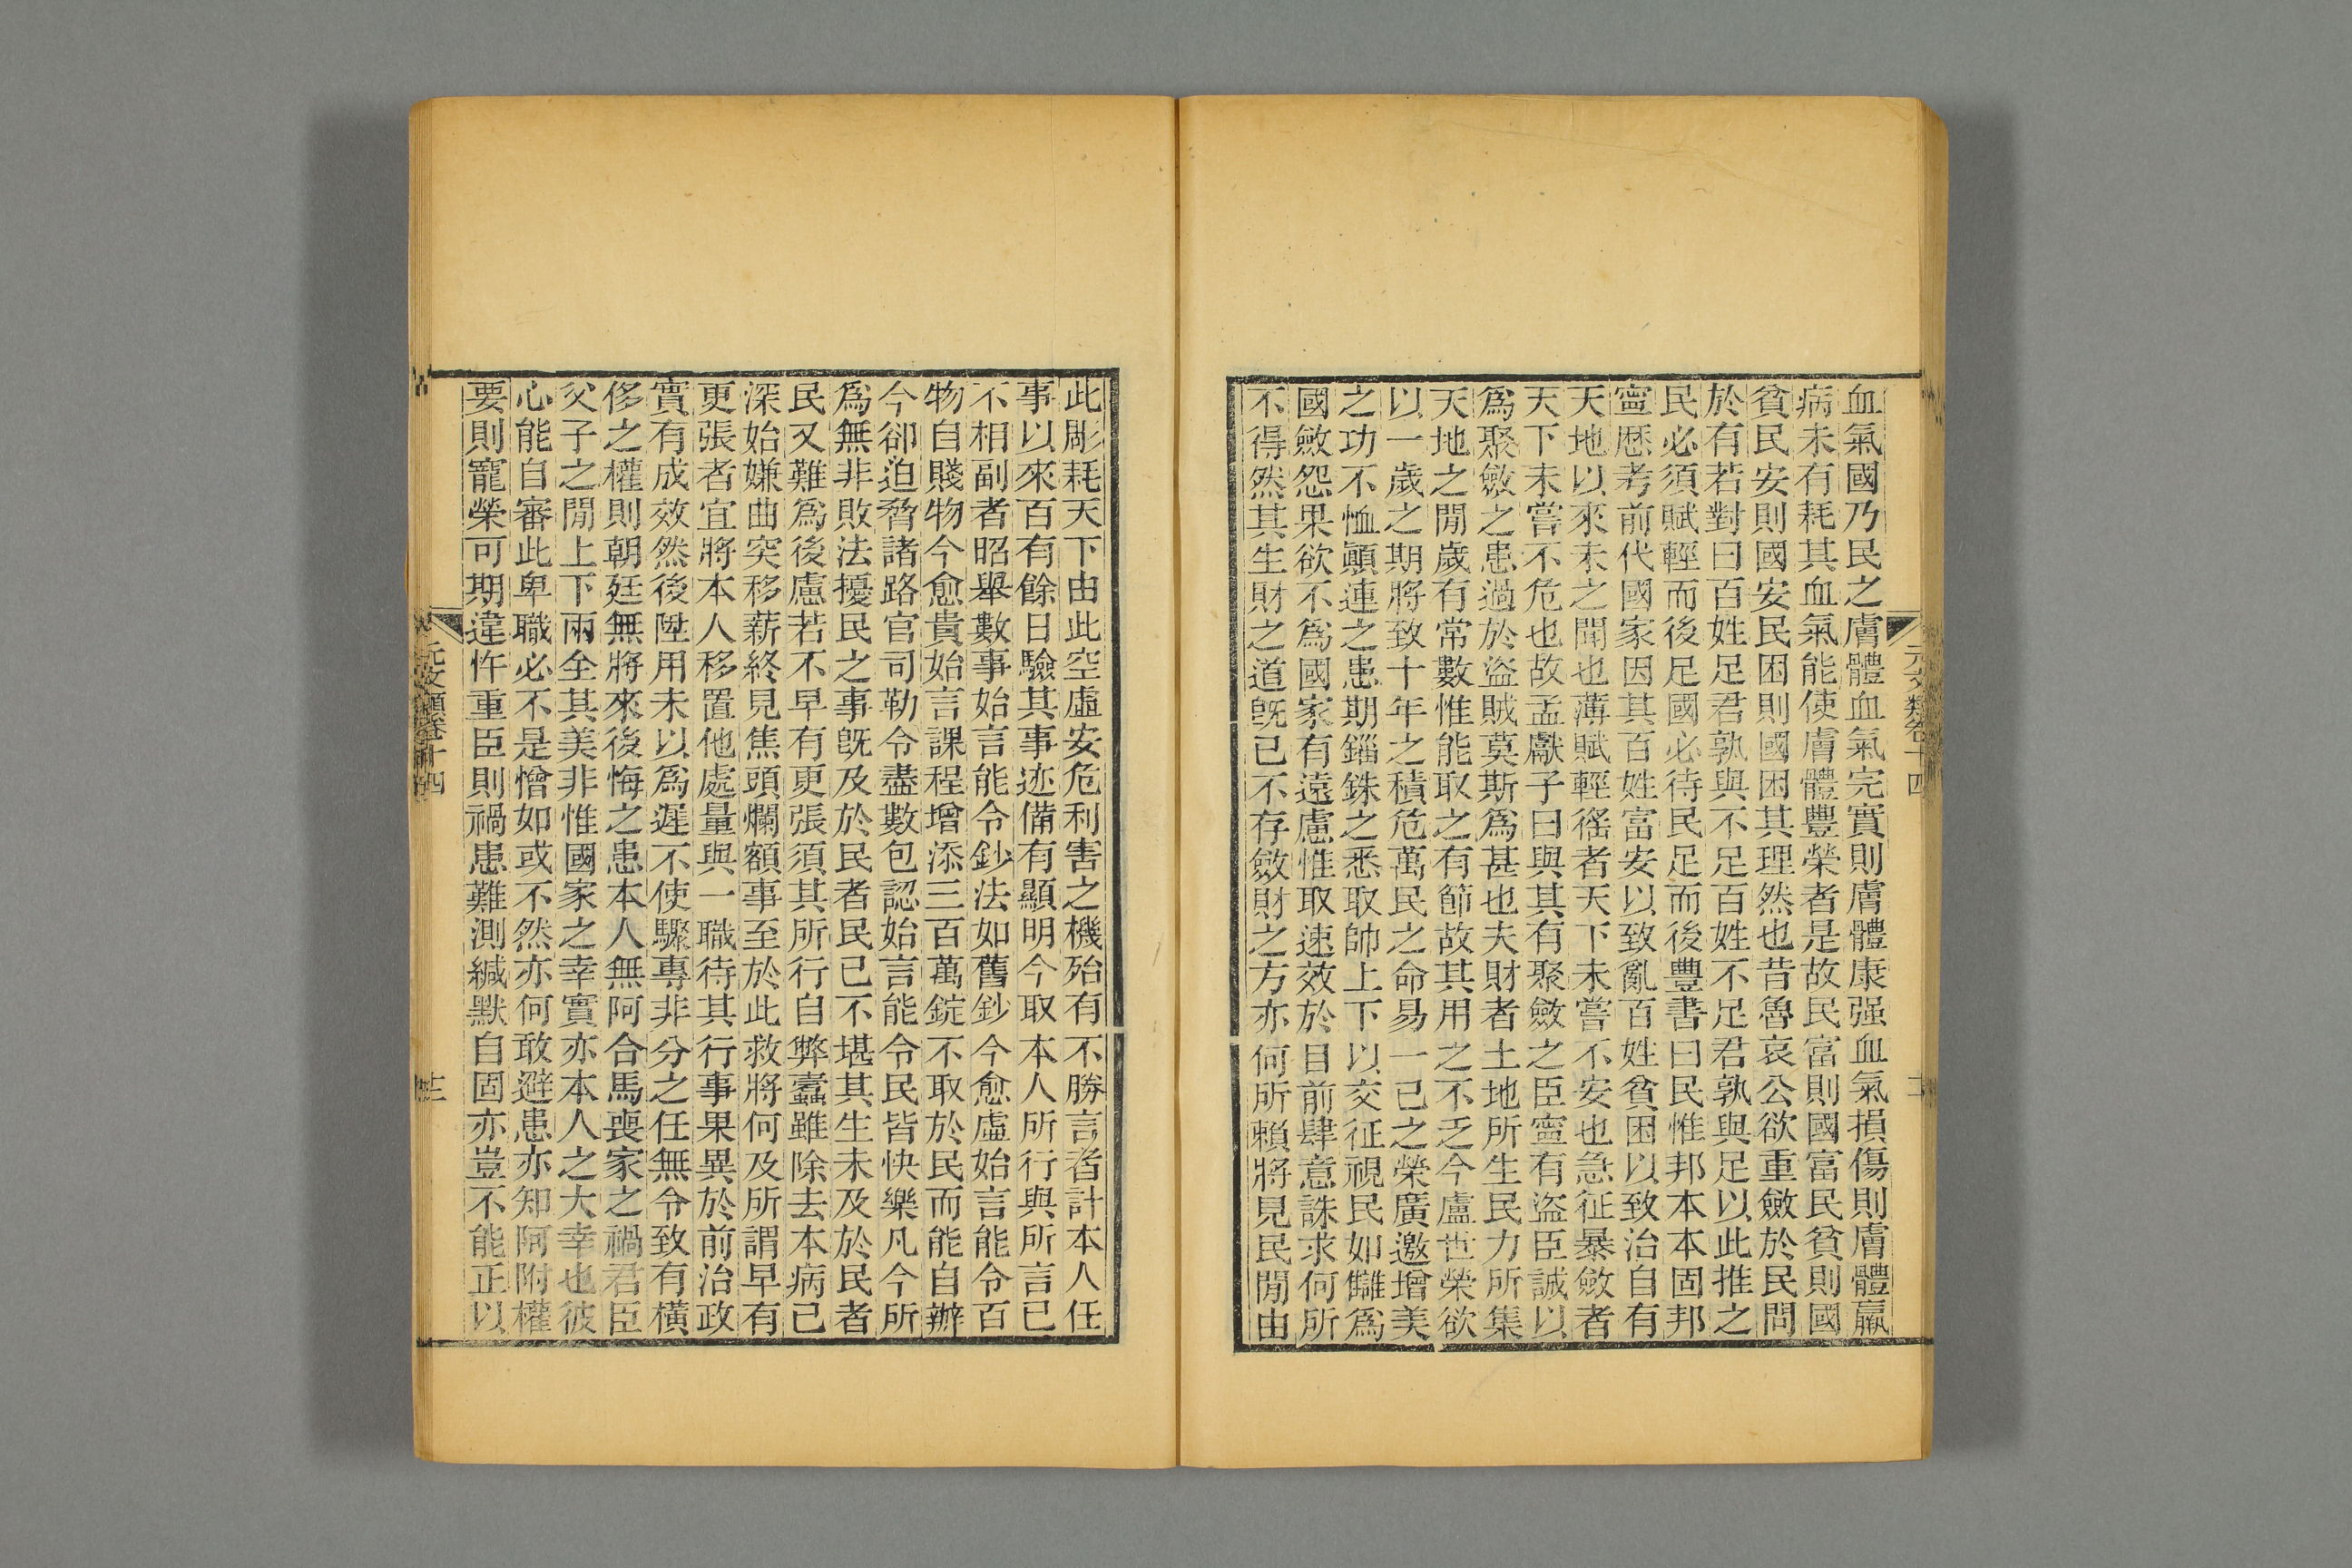 血氣國乃民之膚體血氣完實則膚體康强血氣損傷則膚體羸
病未有耗其血氣能使膚體豐榮者是故民富則國富民貧則國
貧民安則國安民困則國困其理然也昔魯哀公欲重斂於民問
於有若對曰百姓足君孰與不足百姓不足君孰與足以此推之
民必須賦輕而後足國必待民足而後豐書曰民惟邦本本固邦
寧歷考前代國家因其百姓富安以致亂百姓貧困以致治自有
天地以來未之聞也薄賦輕徭者天下未嘗不安也急征暴斂者
天下未嘗不危也故孟獻子曰與其有聚斂之臣寧有盜臣誠以
爲聚斂之患過於盜賊莫斯爲甚也夫財者土地所生民力所集
天地之閒歲有常數惟能取之有節故其用之不乏今盧世榮欲
以一歲之期將致十年之積危萬民之命易一己之榮廣邀增美
之功不恤顚連之患期錙銖之悉取帥上下以交征視民如讎爲
國斂怨果欲不爲國家有遠慮惟取速效於目前肆意誅求何所
不得然其生財之道旣已不存斂財之方亦何所賴將見民閒由
元文類卷十四
此彫耗天下由此空虛安危利害之機殆有不勝言者計本人任
事以來百有餘日驗其事迹備有顯明今取本人所行與所言已
不相副者昭舉數事始言能令鈔法如舊鈔今愈虛始言能令百
物自賤物今愈貴始言課程增添三百萬錠不取於民而能自辦
今卻迫脅諸路官司勒令盡數包認始言能令民皆快樂凡今所
爲無非敗法擾民之事旣及於民者民已不堪其生未及於民者
民又難爲後慮若不早有更張須其所行自弊蠹雖除去本病已
深始嫌曲突移薪終見焦頭爛額事至於此救將何及所謂早有
更張者宜將本人移置他處量與一職待其行事果異於前治政
實有成效然後陞用未以爲遲不使驟專非分之任無令致有橫
侈之權則朝廷無將來後悔之患本人無阿合馬喪家之禍君臣
父子之閒上下兩全其美非惟國家之幸實亦本人之大幸也彼
心能自審此卑職必不是憎如或不然亦何敢避患亦知阿附權
要則寵榮可期違忤重臣則禍患難測緘默自固亦豈不能正以
元文類卷十四